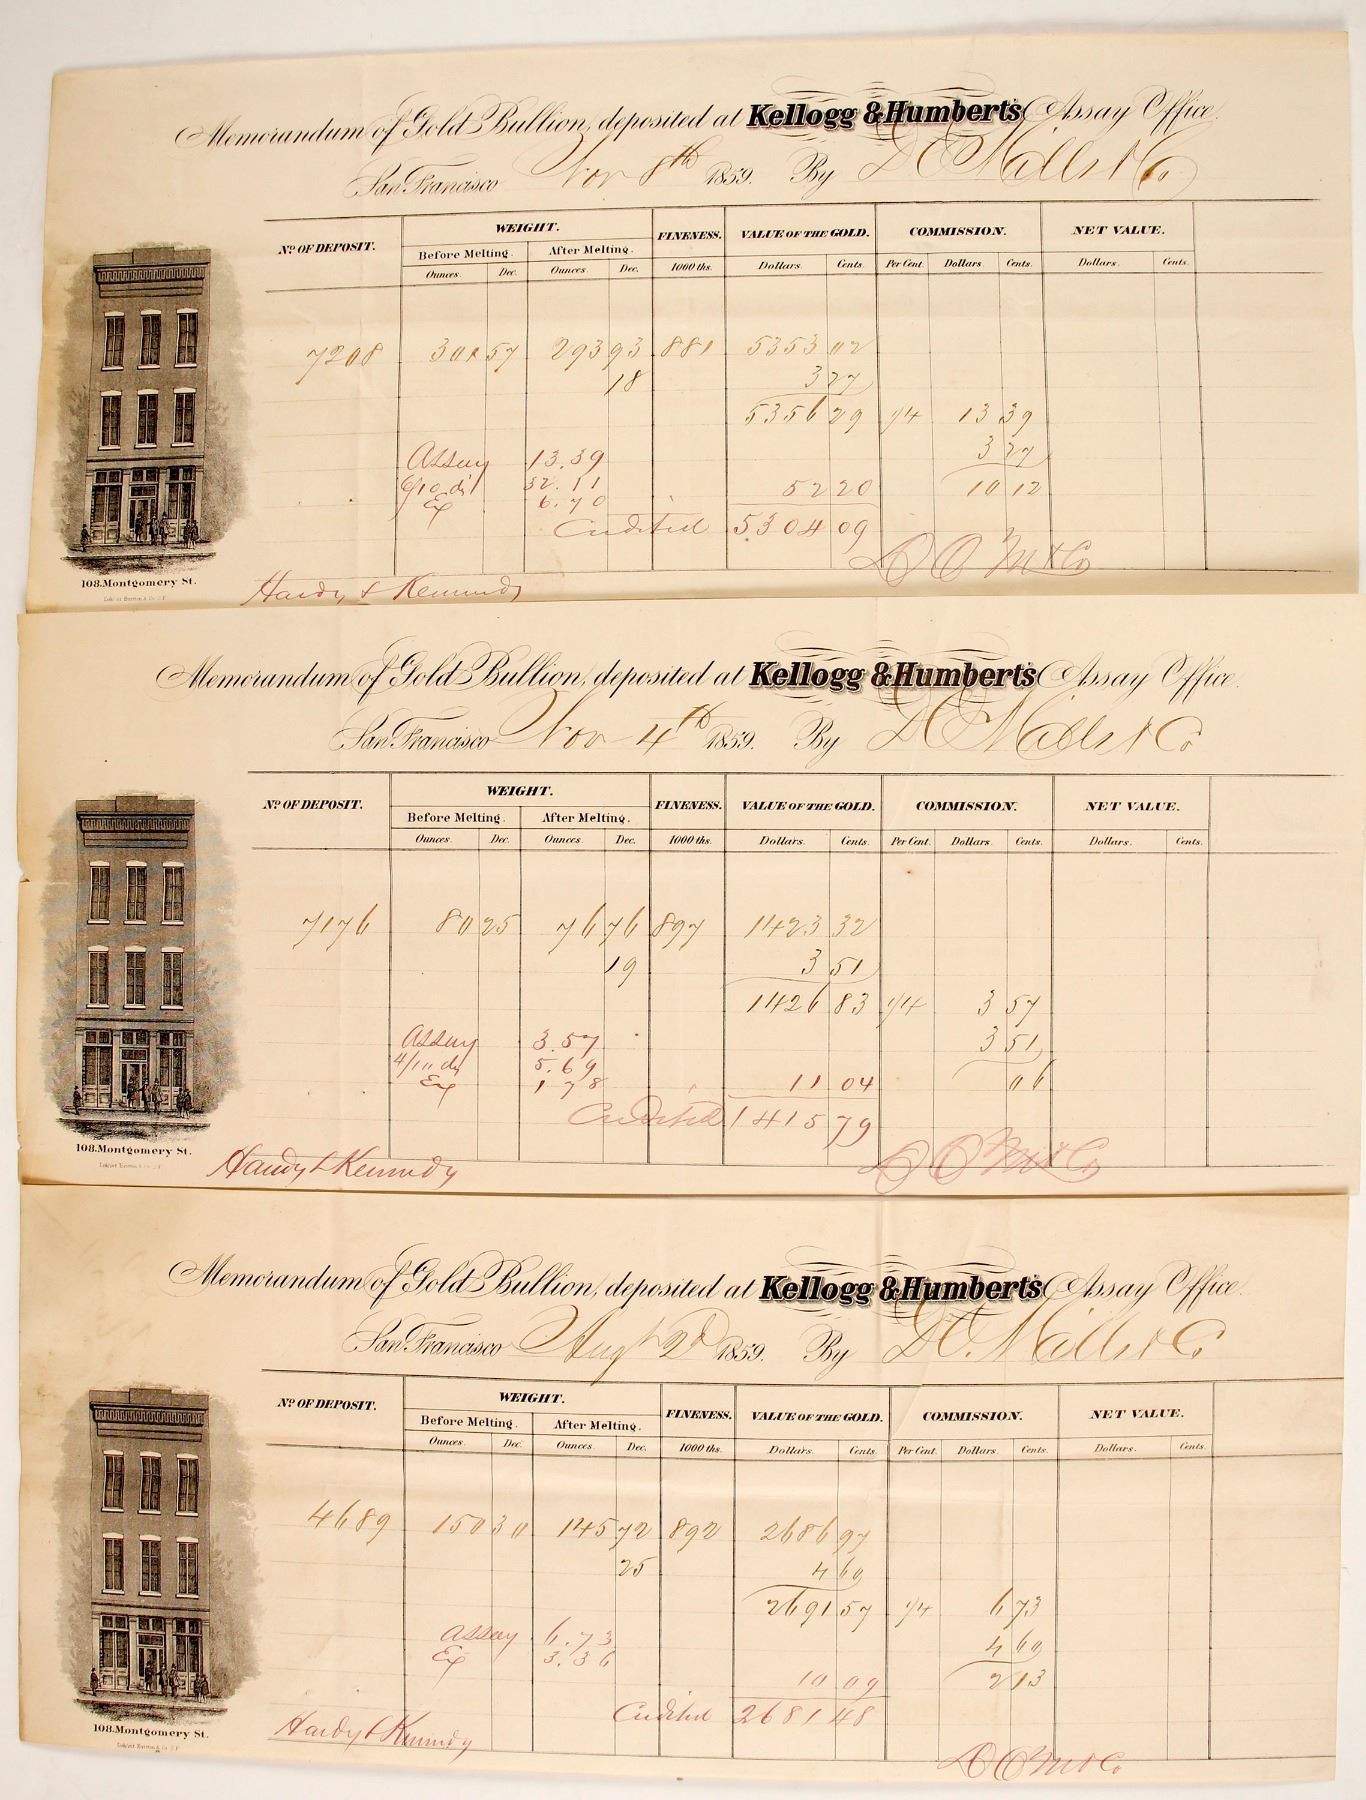 Memorandum of Gold Bullion, deposited at Kellogg & Humbert's Assay Office.
San Francisco Nov 8th 1859. By D O Mills & Co
No. OF DEPOSIT. WEIGHT. FINENESS. VALUE OF THE GOLD. COMMISSION. NET VALUE.
Before Melting. After Melting.
Ounces Dec. Ounces Dec. 1000 ths. Dollars. Cents. Per Cent. Dollars. Cents. Dollars. Cents.
7208 57 293 93 881 5353 02
18 3 27
5356 29 1/4 13 39
Assay 13.39 3 27
6/10 di 32.11 52 20 10 12
Ex 6.70
Credited 5304 09
D O M & Co
108. Montgomery St.
Hardy & Kennedy
Memorandum of Gold Bullion, deposited at Kellogg & Humbert's Assay Office.
San Francisco Nov 4th 1859. By D O Mills & Co
No. OF DEPOSIT. WEIGHT. FINENESS. VALUE OF THE GOLD. COMMISSION. NET VALUE.
Before Melting. After Melting.
Ounces Dec. Ounces Dec. 1000 ths. Dollars. Cents. Per Cent. Dollars. Cents. Dollars. Cents.
7176 80 25 76 76 897 1423 32
19 3 51
1426 83 1/4 3 57
Assay 3.57 3 51
4/10 di 5.69
Ex 1 78 11 04 06
Credited 1415 79
108. Montgomery St.
Hardy & Kennedy D O M & Co
Memorandum of Gold Bullion, deposited at Kellogg & Humbert's Assay Office.
San Francisco Augt 2d 1859. By D O. Mills & Co
No. OF DEPOSIT. WEIGHT. FINENESS. VALUE OF THE GOLD. COMMISSION. NET VALUE.
Before Melting. After Melting.
Ounces Dec. Ounces Dec. 1000 ths. Dollars. Cents. Per Cent. Dollars. Cents. Dollars. Cents.
4689 150 30 145 72 892 2686 97
25 4 60
2691 57 1/4 6 73
Assay 6.73 4 60
Ex 3.36
10 09 2 13
Credited 2681 48
108. Montgomery St.
Hardy & Kennedy
D O M & Co